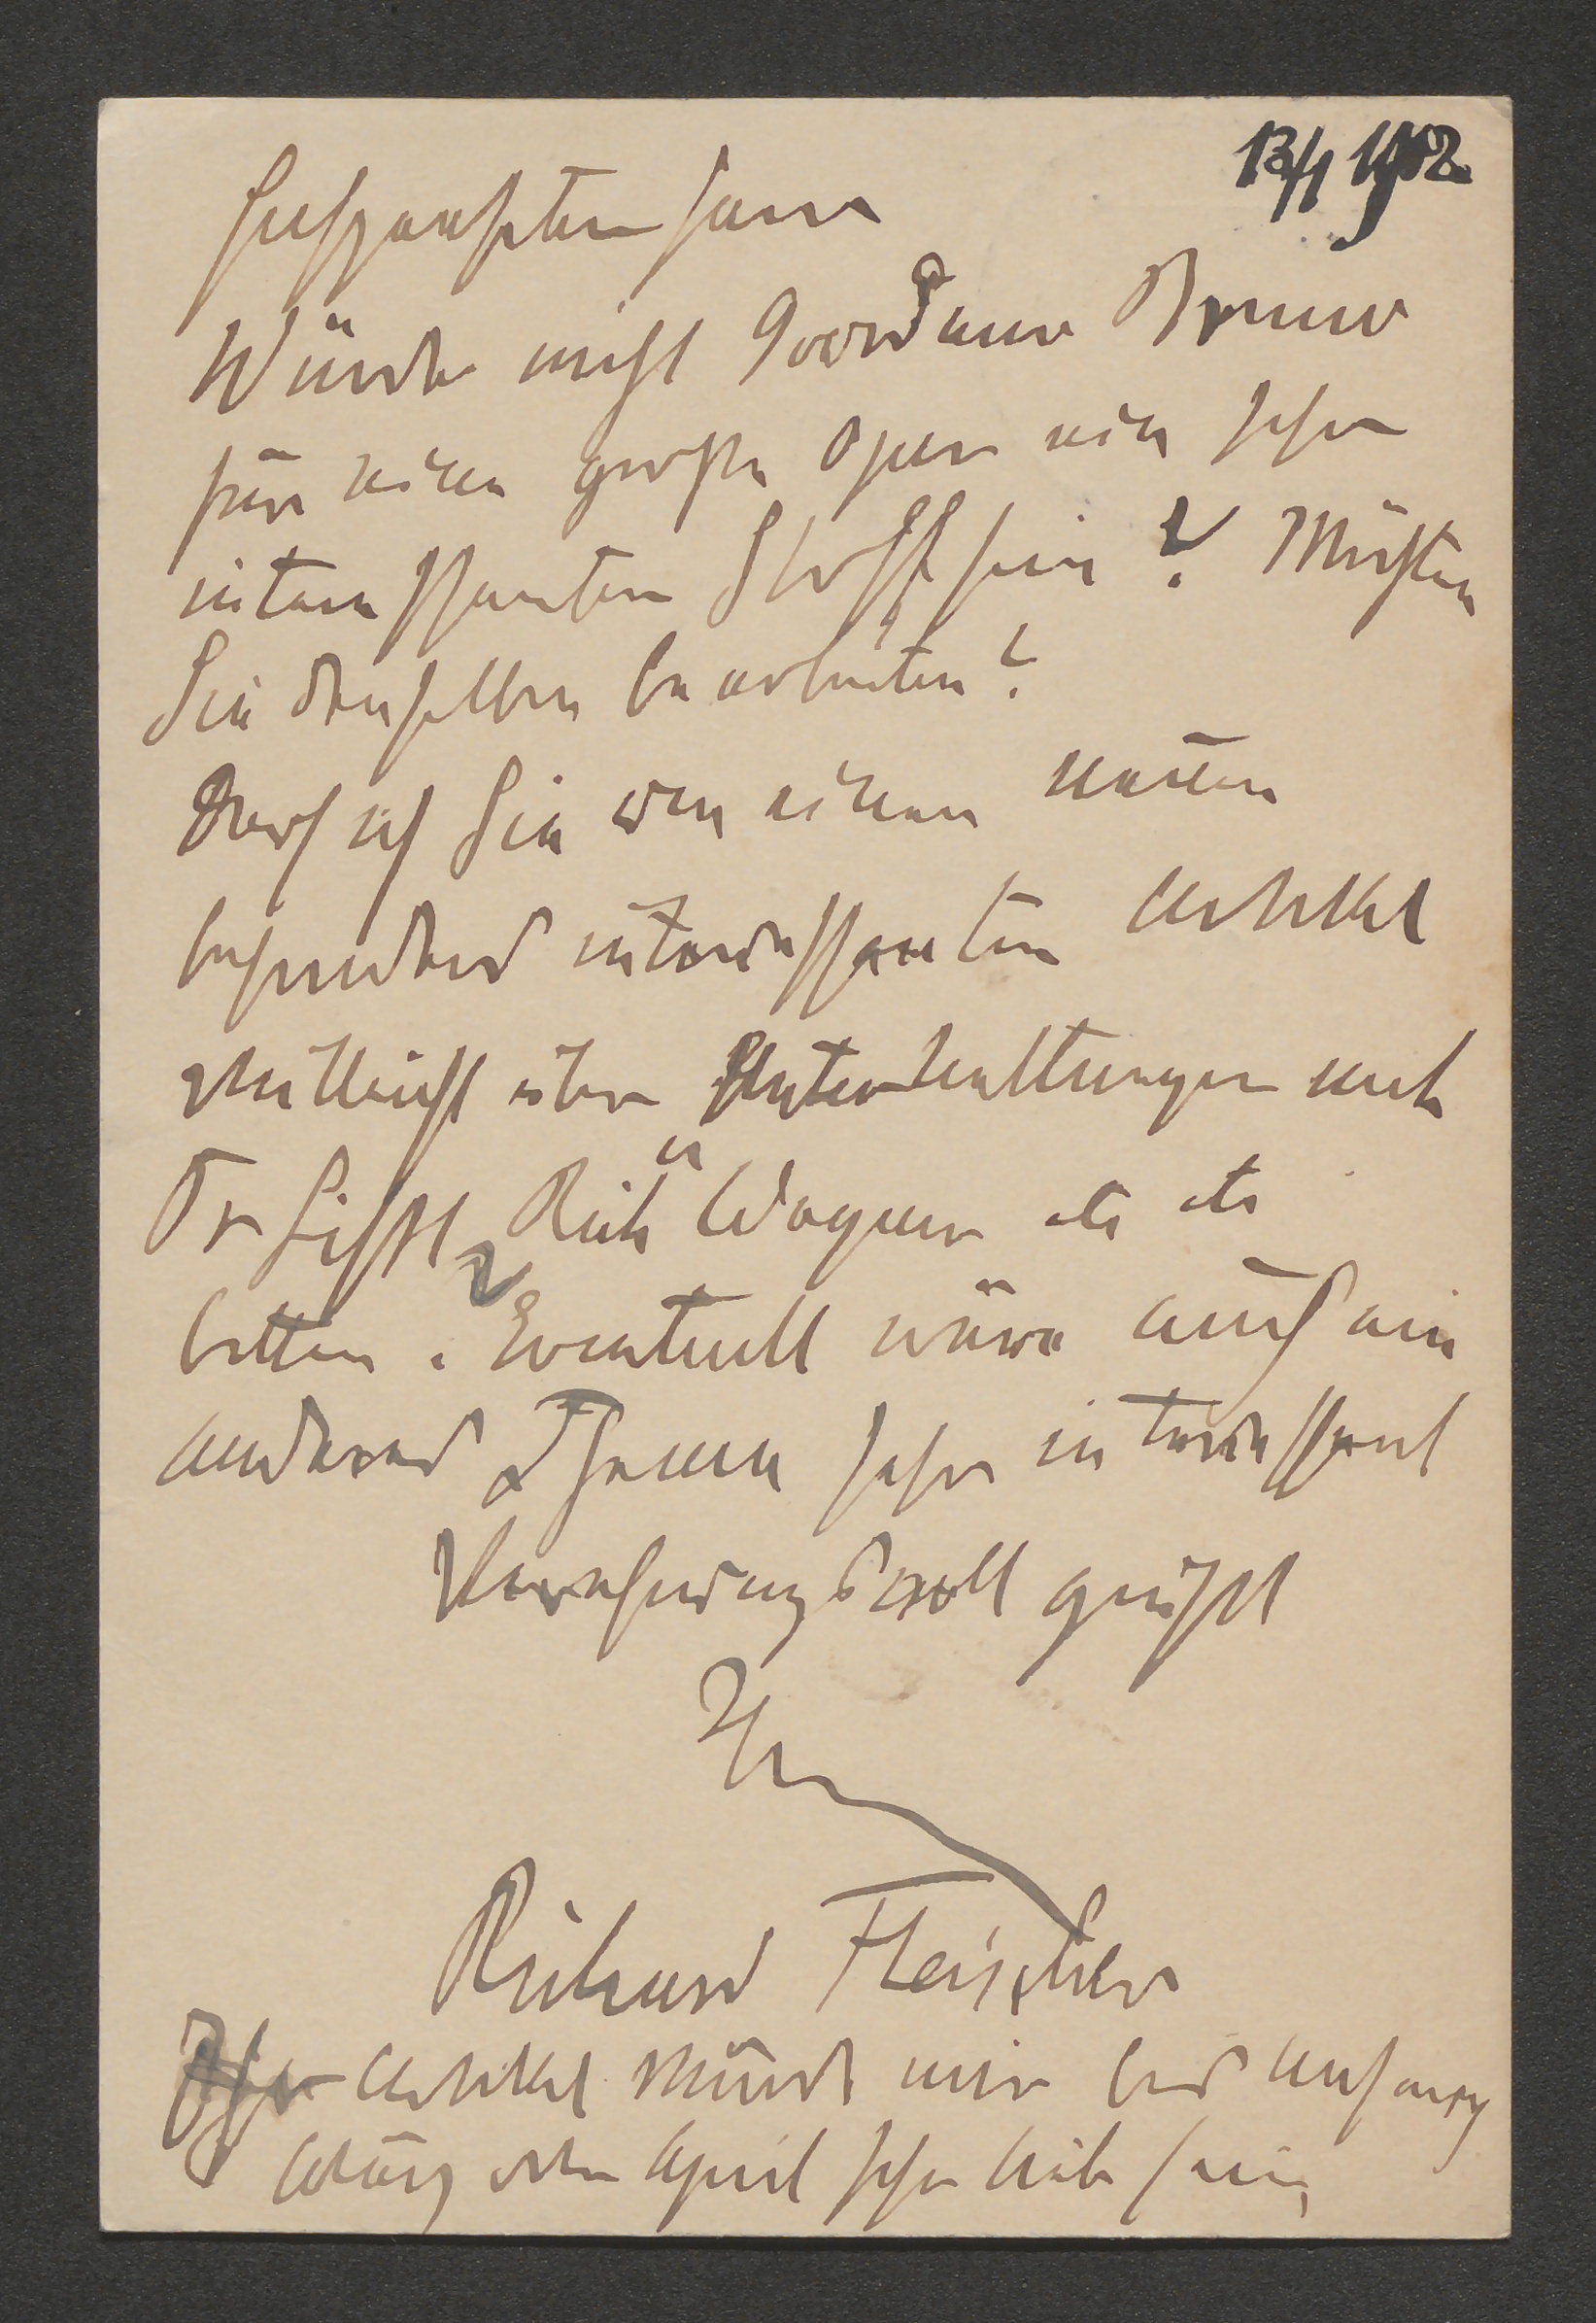 13/1 1902
Hochgeehrter Herr
Würde nicht Giordano Bruno
für eine große Oper ein sehr
interessanter Stoff sein? Möchten
Sie denselben bearbeiten?
Darf ich Sie um einen neuen
besonders interessanten Artikel
vielleicht über Unterhaltungen mit
Fr Lisszt, Rich Wagner etc etc
bitten. Eventuell wäre auch ein
anderes Thema sehr interessant
Verehrungsvoll grüßt
Ihr
Richard Fleischer
Ihr Artikel würde mir bis Anfang
März oder April sehr lieb sein,